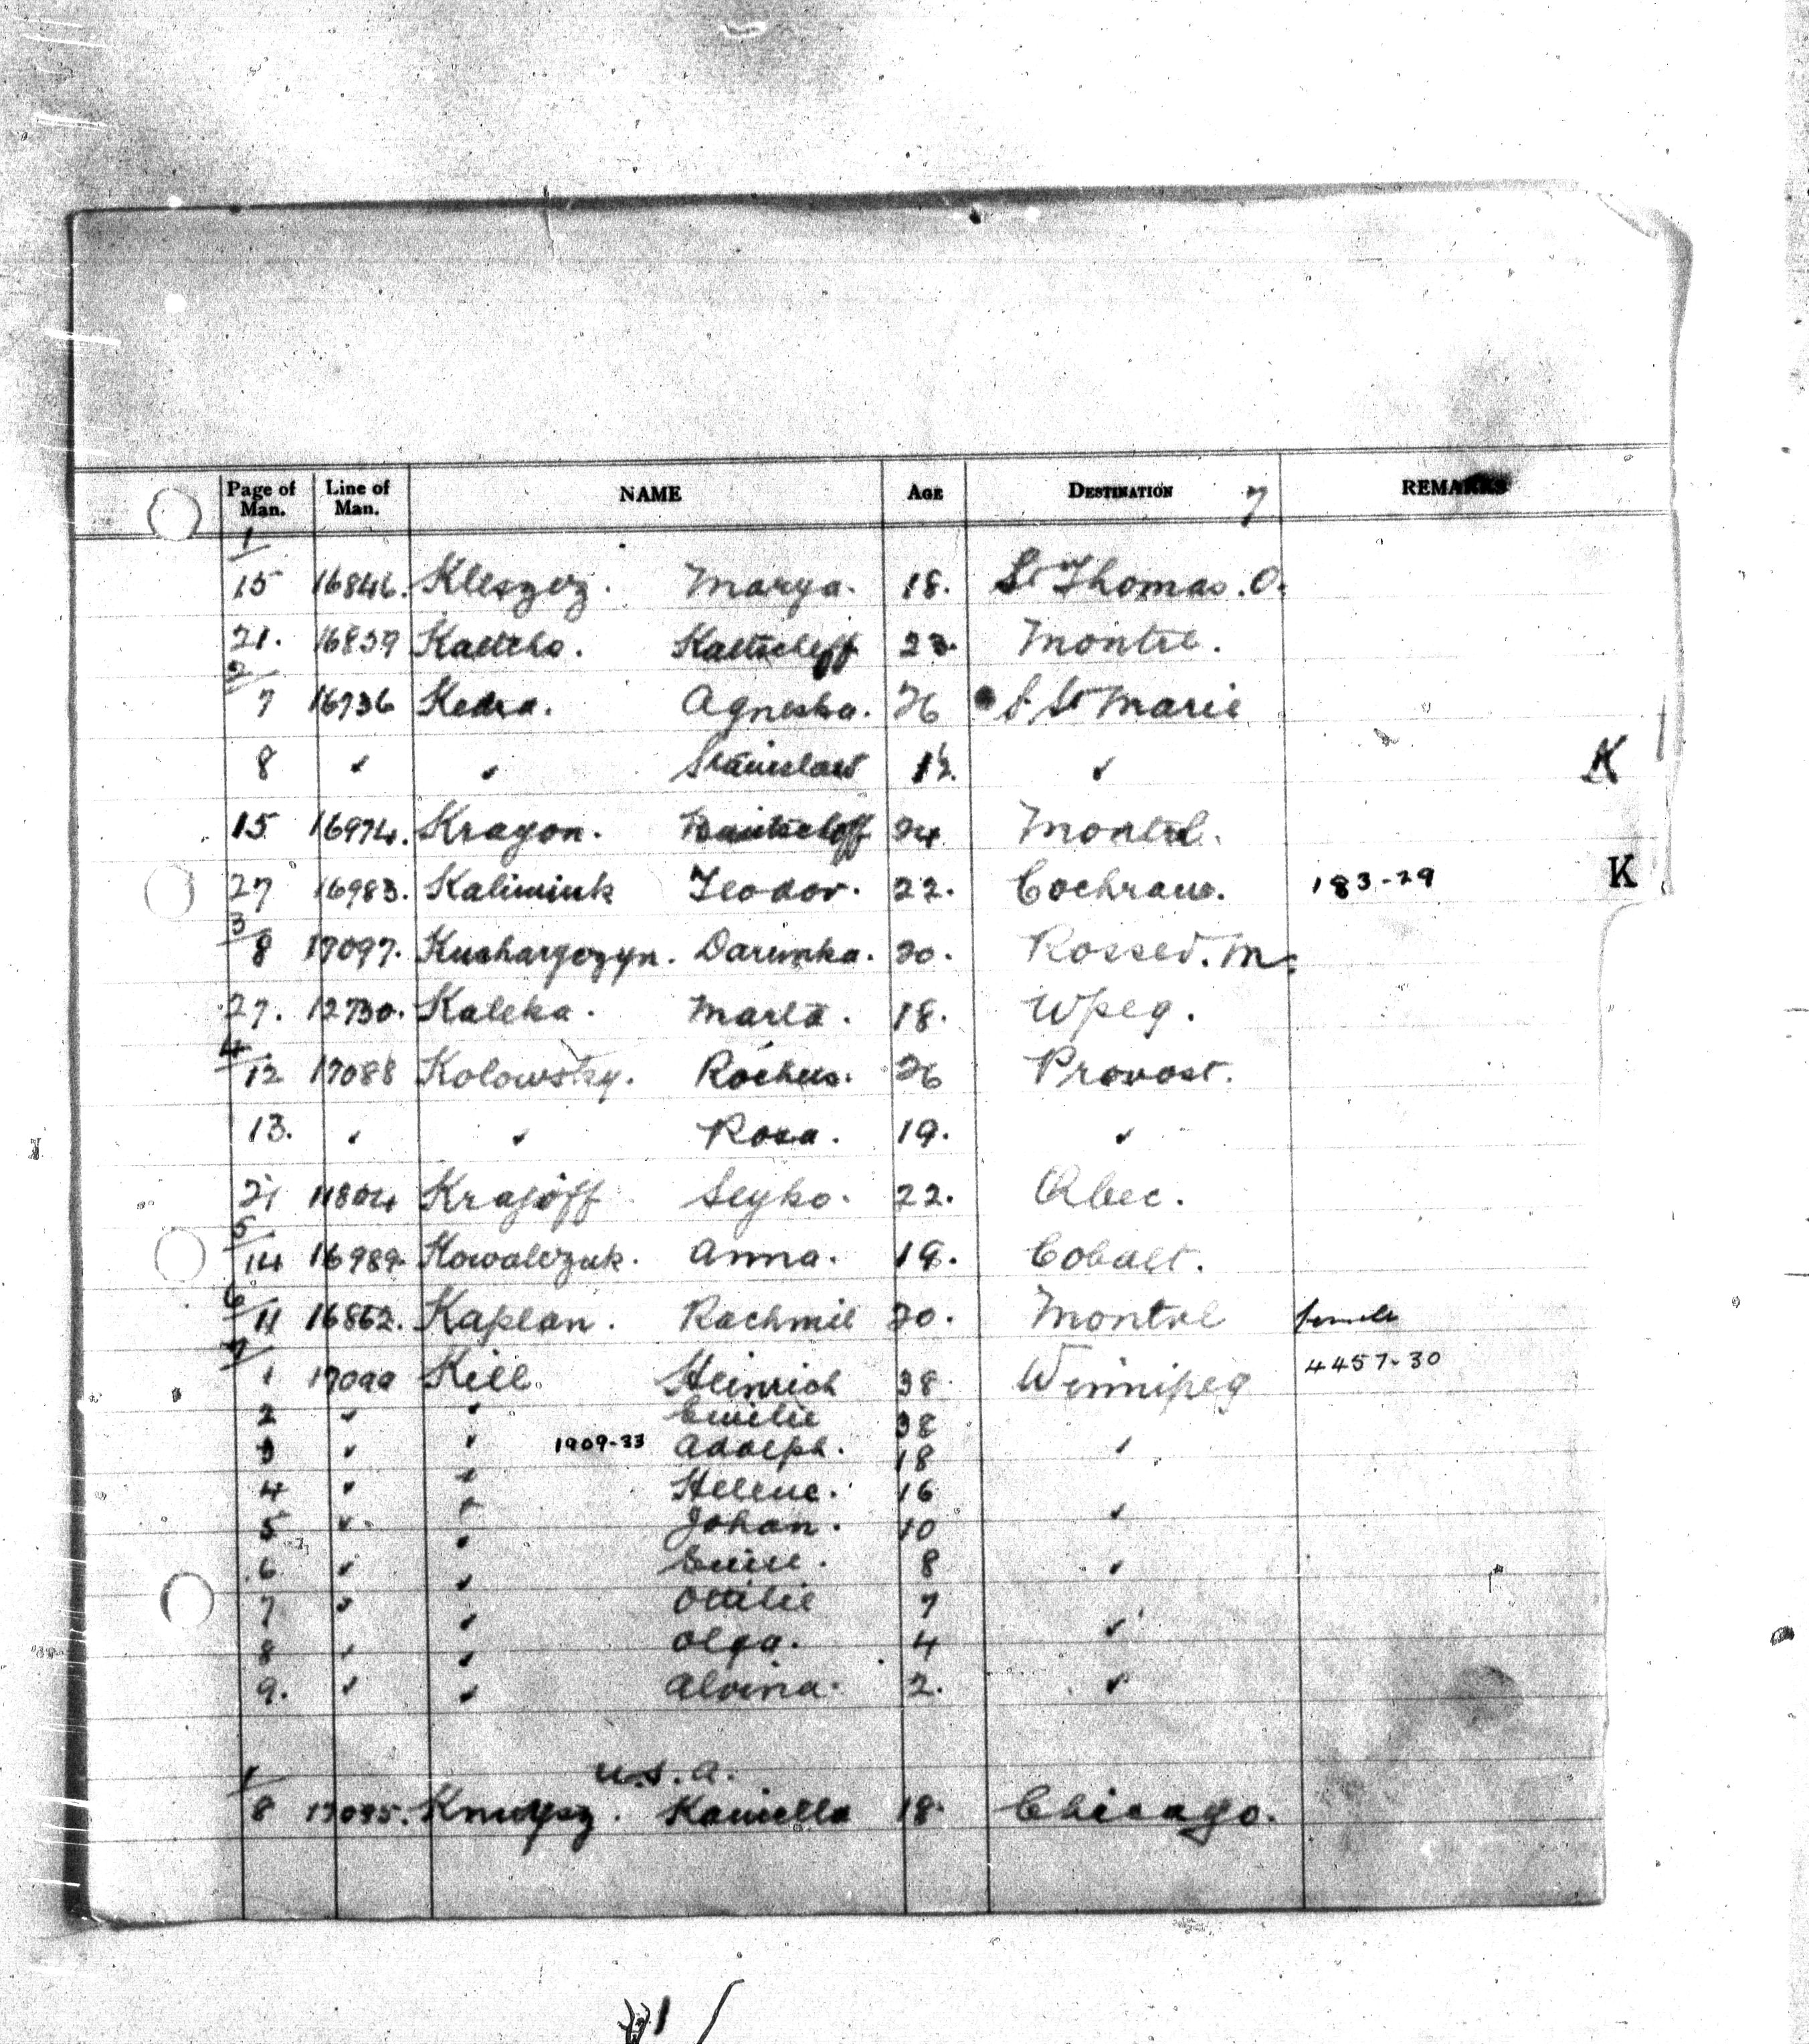 Page of Man. Line of Man. NAME AGE DESTINATION 7 REMARKS
1/
15 16846. Kleszcz. Marya. 18. St Thomas. O.
21. 16839 Kaltcho. Kaltscheff 23. Montrl.
2/
7 16736 Kedra. Agneska. 26 S. St Marie
8 " " Stanislaw 1½. "
K
15 16974. Kragon. 24 Montrl.
27 16983. Kaliniuk Teodor. 22. Cochrane. 183-29
K
3/
8 17097. Kuchargczyn. Darinka. 20. Rossed. M.
27. 12730. Kaleka. Marta. 18. Wpeg.
4/
12 17088 Kolowsky. Rochus. 26 Provost.
13. " " Rosa. 19. "
21 11804 Krajoff Seyko. 22. Qbec.
5/
14 16989. Kowalczuk. Anna. 19. Cobalt.
6/
11 16862. Kaplan. Rachmil 20. Montrl female
7/
1 17099 Kill. Heinrich 38. Winnipeg 4457-30
2 " " Emilie 38
3 " " 1909-33 Adolph. 18 "
4 " " Helene. 16
5 " " Johan. 10 "
6 " " 8 "
7 " " Ottilie 7
8 " " Olga. 4 "
9. " " Alvina. 2. "
U.S.A.
1/
8 17085. Kamella 18. Chicago.